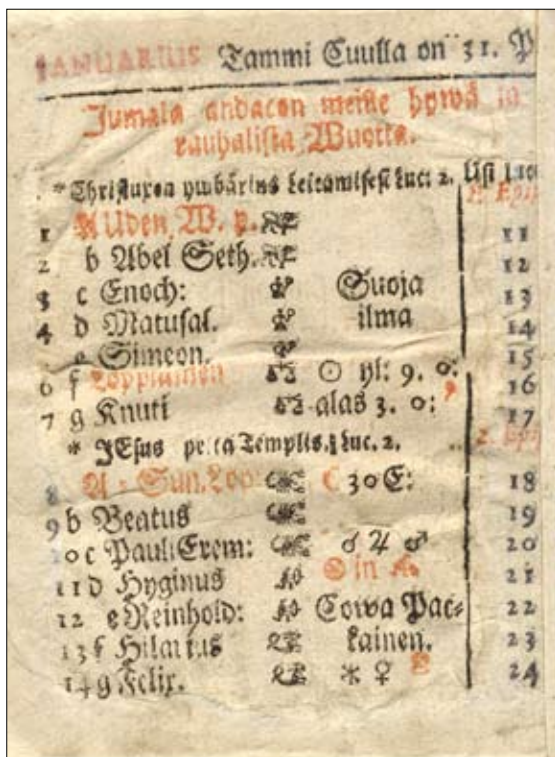 IANUARIUS Tammi Cuulla on 31. P
Jumala andacon meille hywä ja
rauhalista Wuotta.
* Christuxen ymbärins leicamisest Luc: 2. Usi Luc
1 A Uden W. p. 11
2 b Abel Seth. 12
3 c Enoch: Suoja 13
4 d Matusal. ilma 14
5 e Simeon. 15
6 f Loppiainen ☉ yl: 9. o: 16
7 g Knuti alas 3. o: 17
* JEsus Templis. Luc. 2. 2. Epi
8 A 1 Sun. Lop: ☾ 30 E: 18
9 b Beatus 19
10 c Pauli Erem: ☌ ♃ ♂ 20
11 d Hyginus ☉ in 21
12 e Reinhold: Cowa Pac- 22
13 f Hilarius kainen. 23
14 g Felix. ⚹ ♀ 24